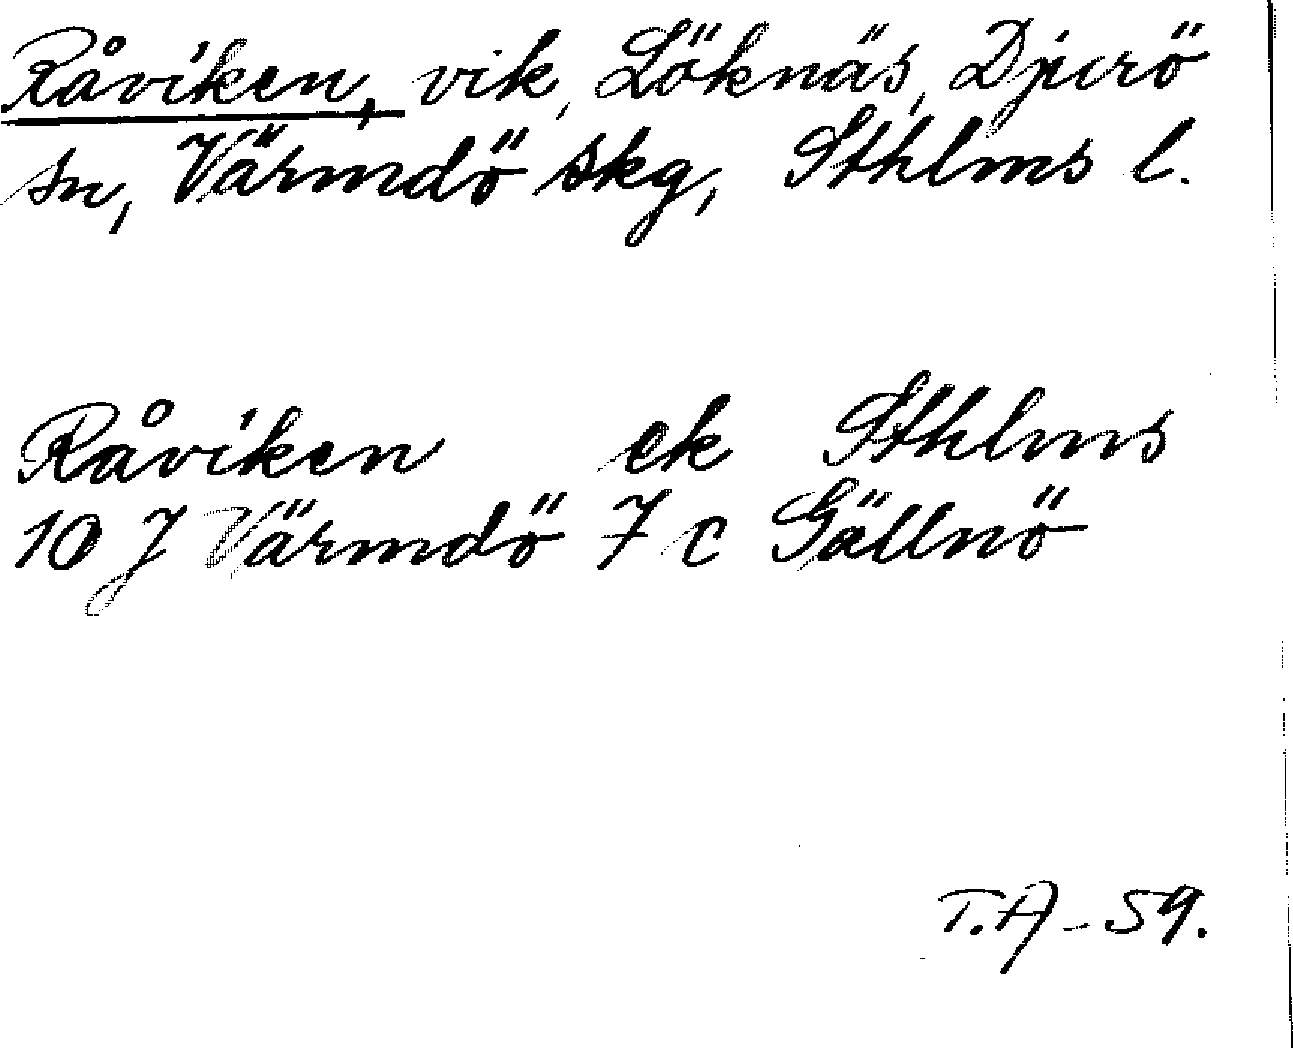 Råviken, vik, Löknäs, Djurö
sn, Värmdö skg, Sthlms l.
Råviken ek Sthlms
10 J Värmdö 7 c Gällnö
T.A - 59.